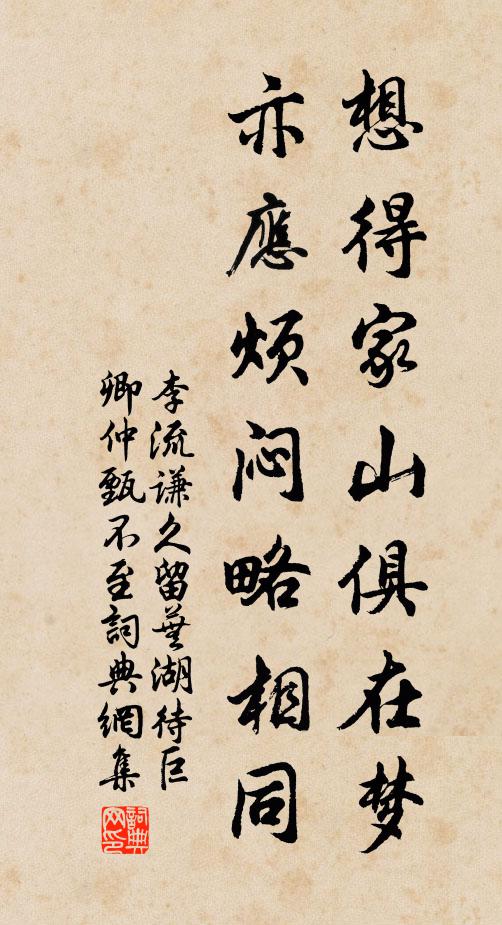 想得家山俱在梦
亦應煩闷略相同
李流謙久留蕪湖待巨
卿仲甄不至詞典網集
詞典
网印